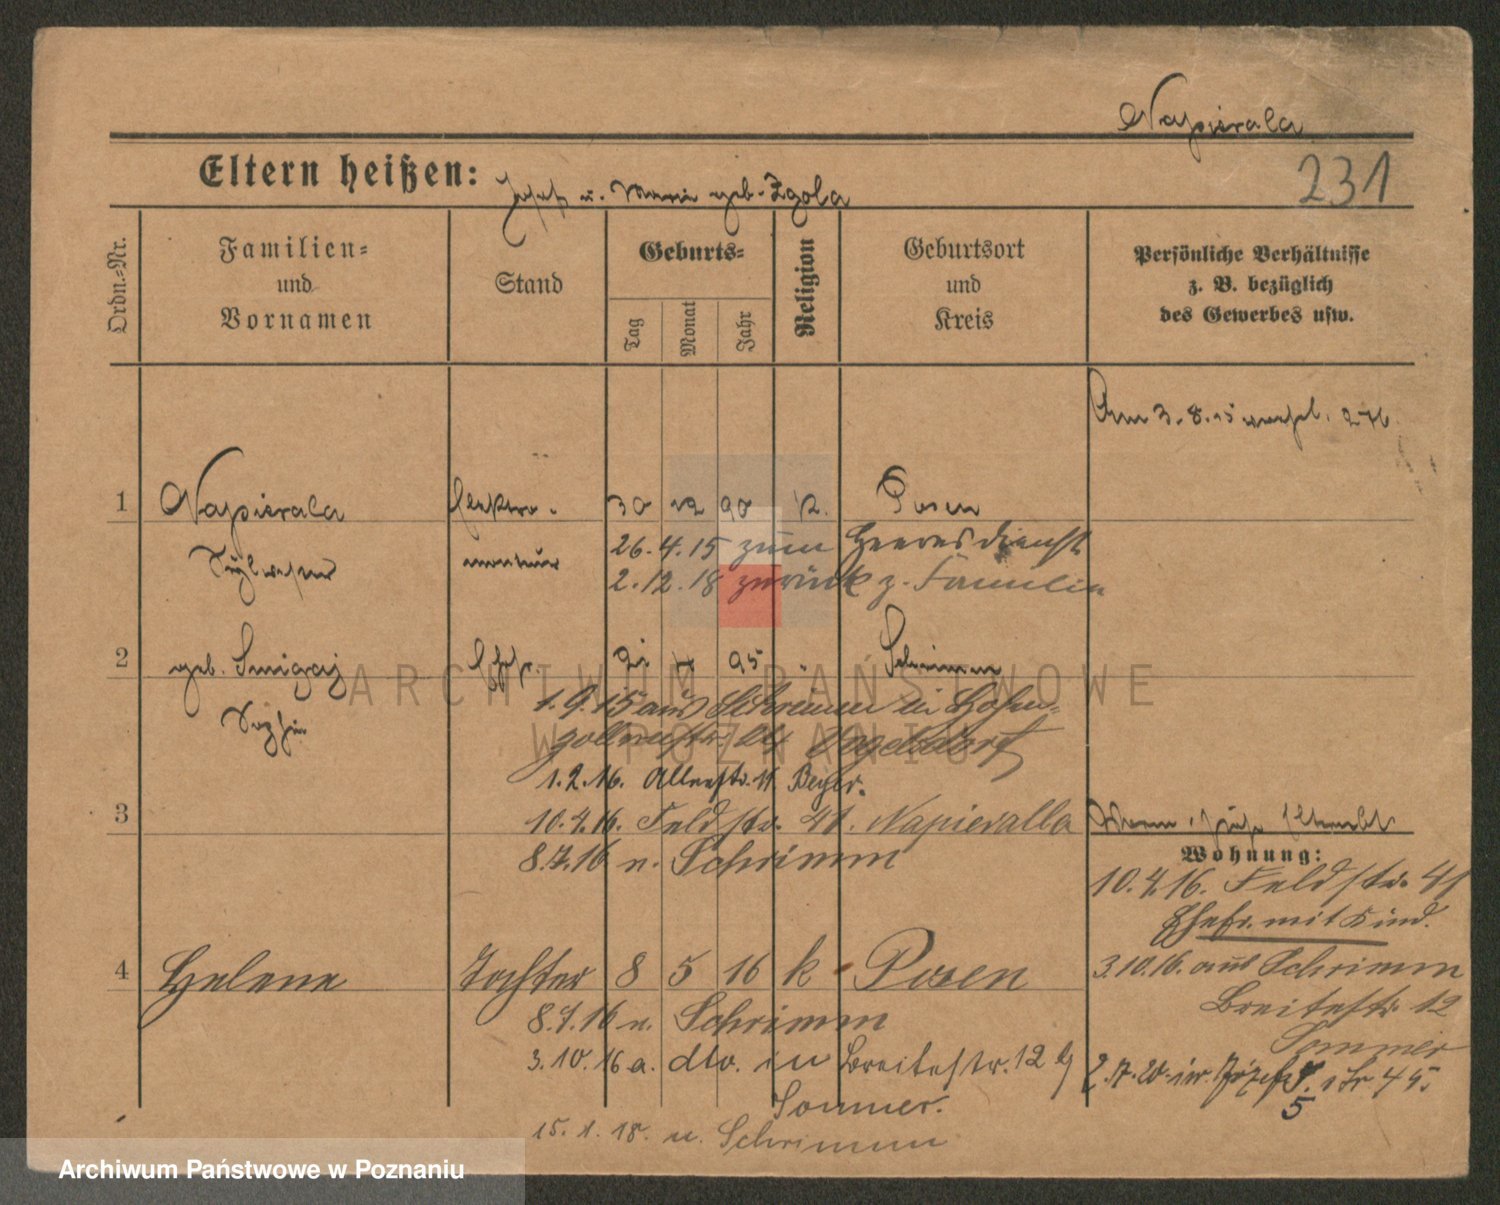 Napierala
231
Eltern heißen: Josef u. Marie geb. Zgola
Ordn.-Nr.
Familien-
und
Vornamen
Stand
Geburts-
Tag
Monat
Jahr
Religion
Geburtsort
und
Kreis
Persönliche Verhältnisse
z. B. bezüglich
des Gewerbes usw.
Am 3.8.15
1 Napierala Elektro- 30 12 90 k. Posen
Sylvester monteur 26.4.15 zum Heeresdienst
2.12.18 zurück z. Familie
2 geb. Smigaj Ehefr. 95 Schrimm
Sophie
1.9.15 aus Schrimm in Hohen-
zollernstr.
1.2.16. Beyer.
3 10.4.16. Feldstr. 41. Napieralla
8.7.16 n. Schrimm
Wohnung:
10.4.16. Feldstr. 41
Ehefr. mit Kind.
4 Helene Tochter 8 5 16 k Posen
3.10.16. aus Schrimm
Breitestr. 12
Sommer
8.7.16 n. Schrimm
3.10.16 a. dto. in Breitestr. 12 b/
Sommer.
15.1.18. n. Schrimm
5
ARCHIWUM PAŃSTWOWE
W POZNANIU
Archiwum Państwowe w Poznaniu